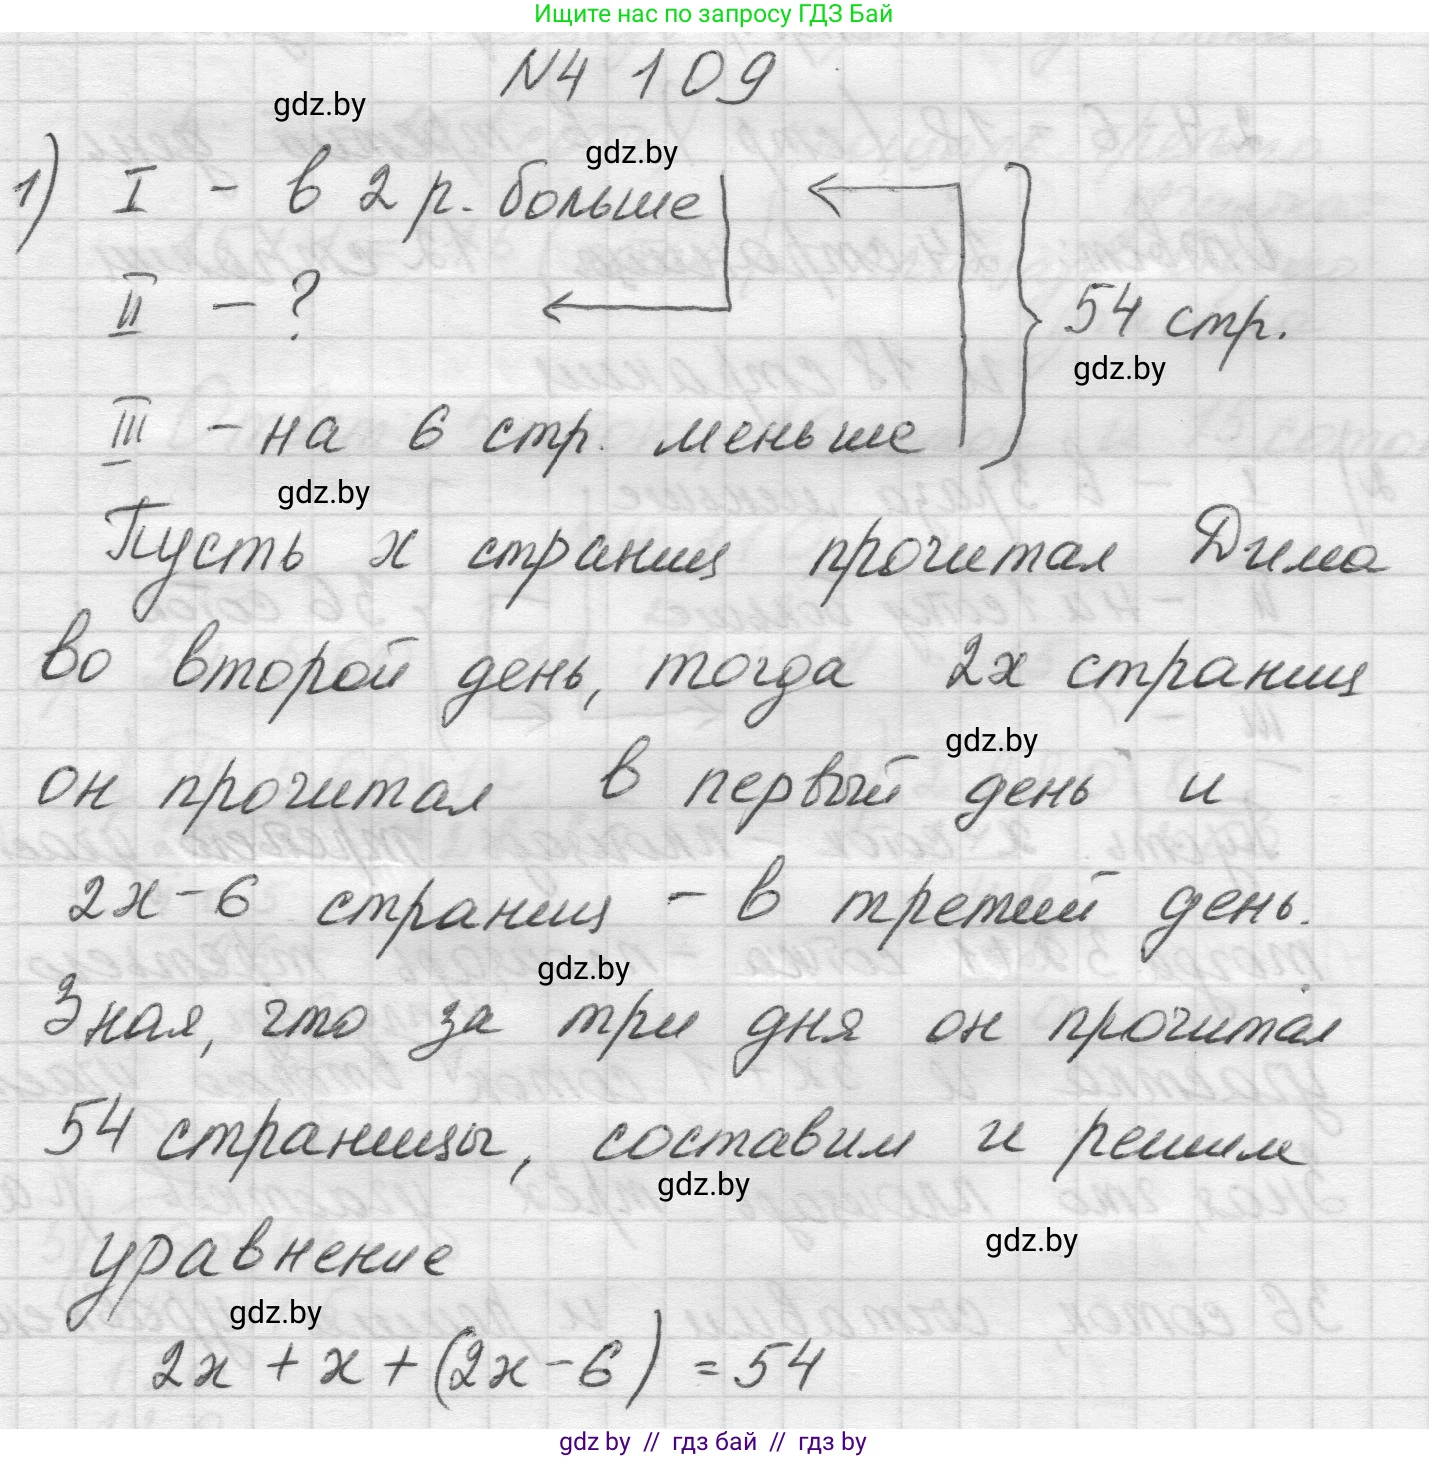 Ищите нас по запросу ГДЗ Бай
N4 109
gdz.by
gdz.by
1) I - в 2 р. больше
II - ?
54 стр.
gdz.by
III - на 6 стр. меньше
gdz.by
Пусть x страниц прочитал Дима
во второй день, тогда 2x страниц
gdz.by
он прочитал в первый день и
2x-6 страниц - в третий день.
gdz.by
Зная, что за три дня он прочитал
54 страницы, составим и решим
gdz.by
уравнение
gdz.by
gdz.by
2x + x + (2x-6) = 54
gdz.by // гдз бай // гдз by